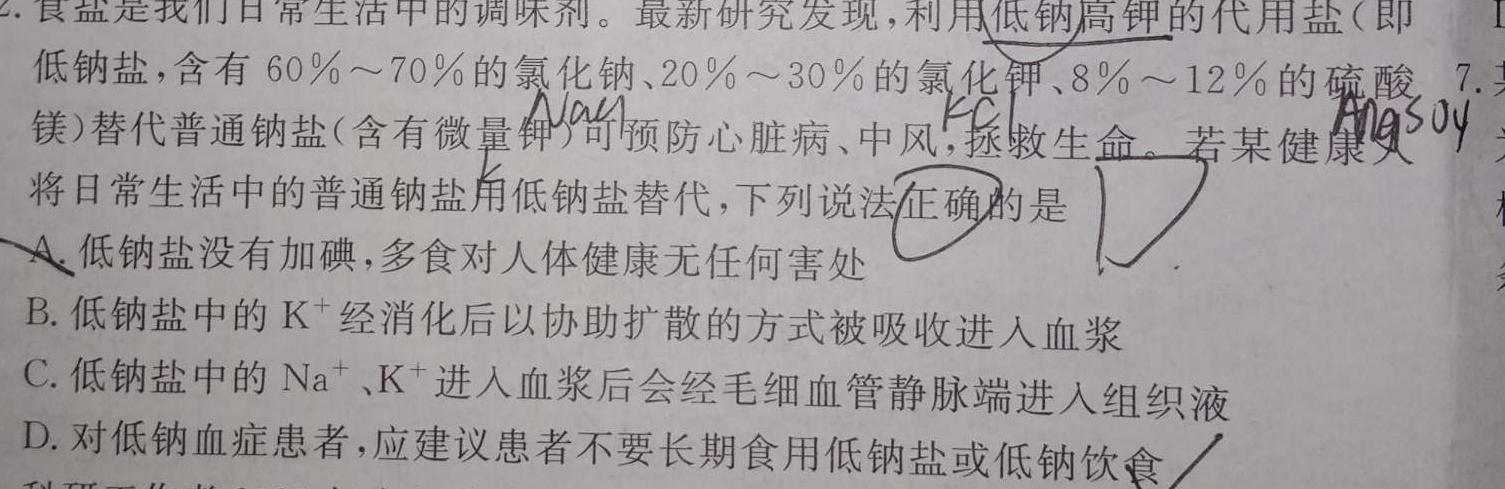 2.食盐是我们日常生活中的调味剂。最新研究发现,利用低钠高钾的代用盐(即
低钠盐,含有60%~70%的氯化钠、20%~30%的氯化钾、8%~12%的硫酸
7.
NaCl KCl
镁)替代普通钠盐(含有微量钾)可预防心脏病、中风,拯救生命。若某健康人
K
将日常生活中的普通钠盐用低钠盐替代,下列说法正确的是
D
A.低钠盐没有加碘,多食对人体健康无任何害处
B.低钠盐中的K⁺经消化后以协助扩散的方式被吸收进入血浆
C.低钠盐中的Na⁺、K⁺进入血浆后会经毛细血管静脉端进入组织液
D.对低钠血症患者,应建议患者不要长期食用低钠盐或低钠饮食